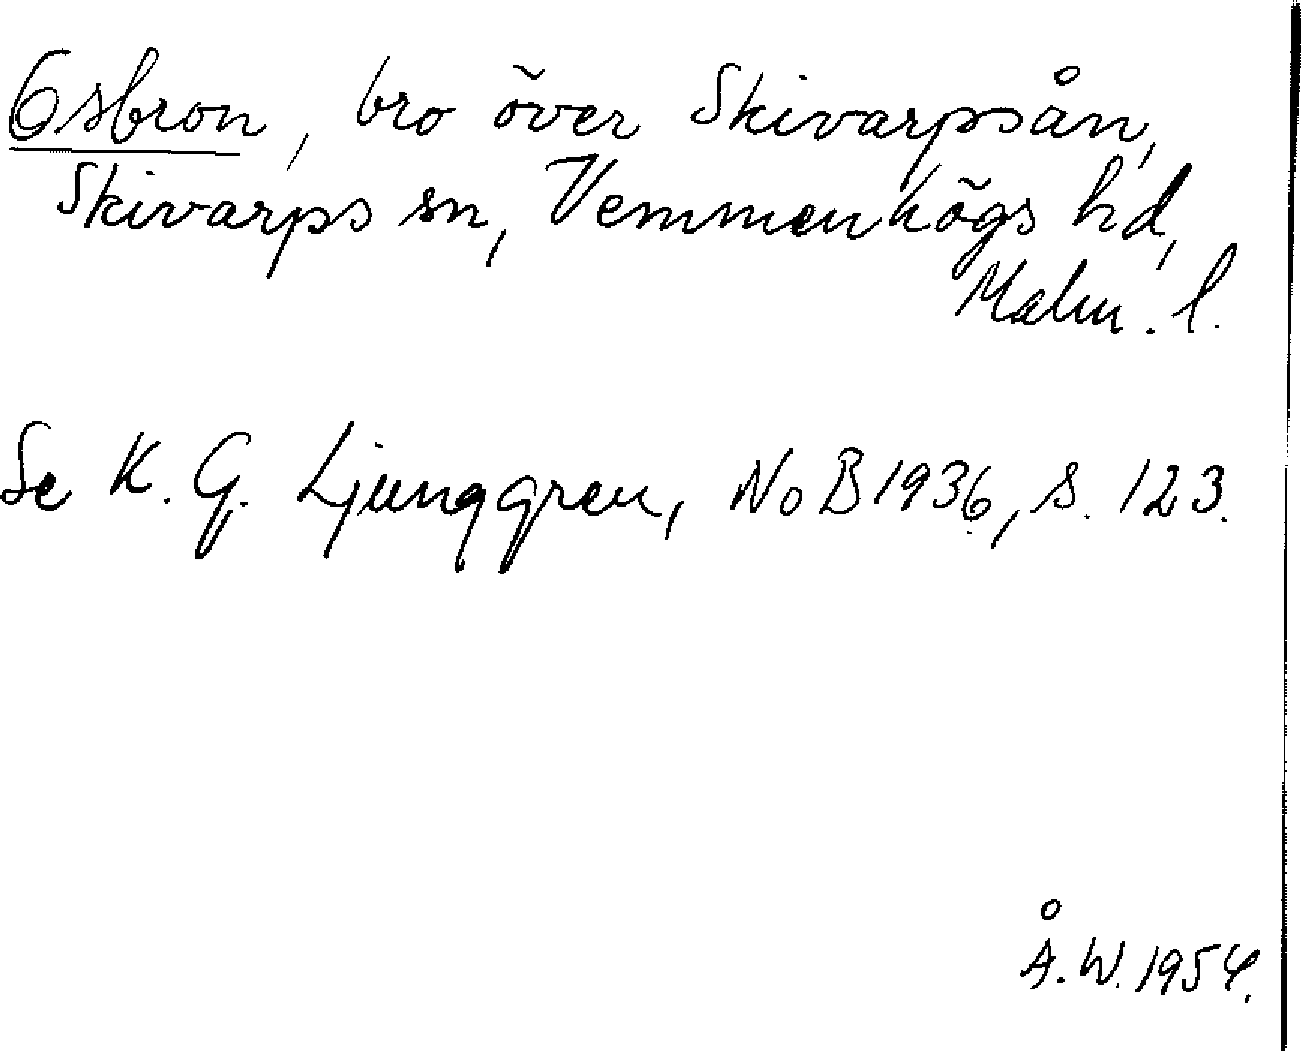 Osbron, bro över Skivarpsån,
Skivarps sn, Vemmenhögs hd,
Malm. l.
Se K. G. Ljunggren, NoB 1936, s. 123.
Å. W. 1954.